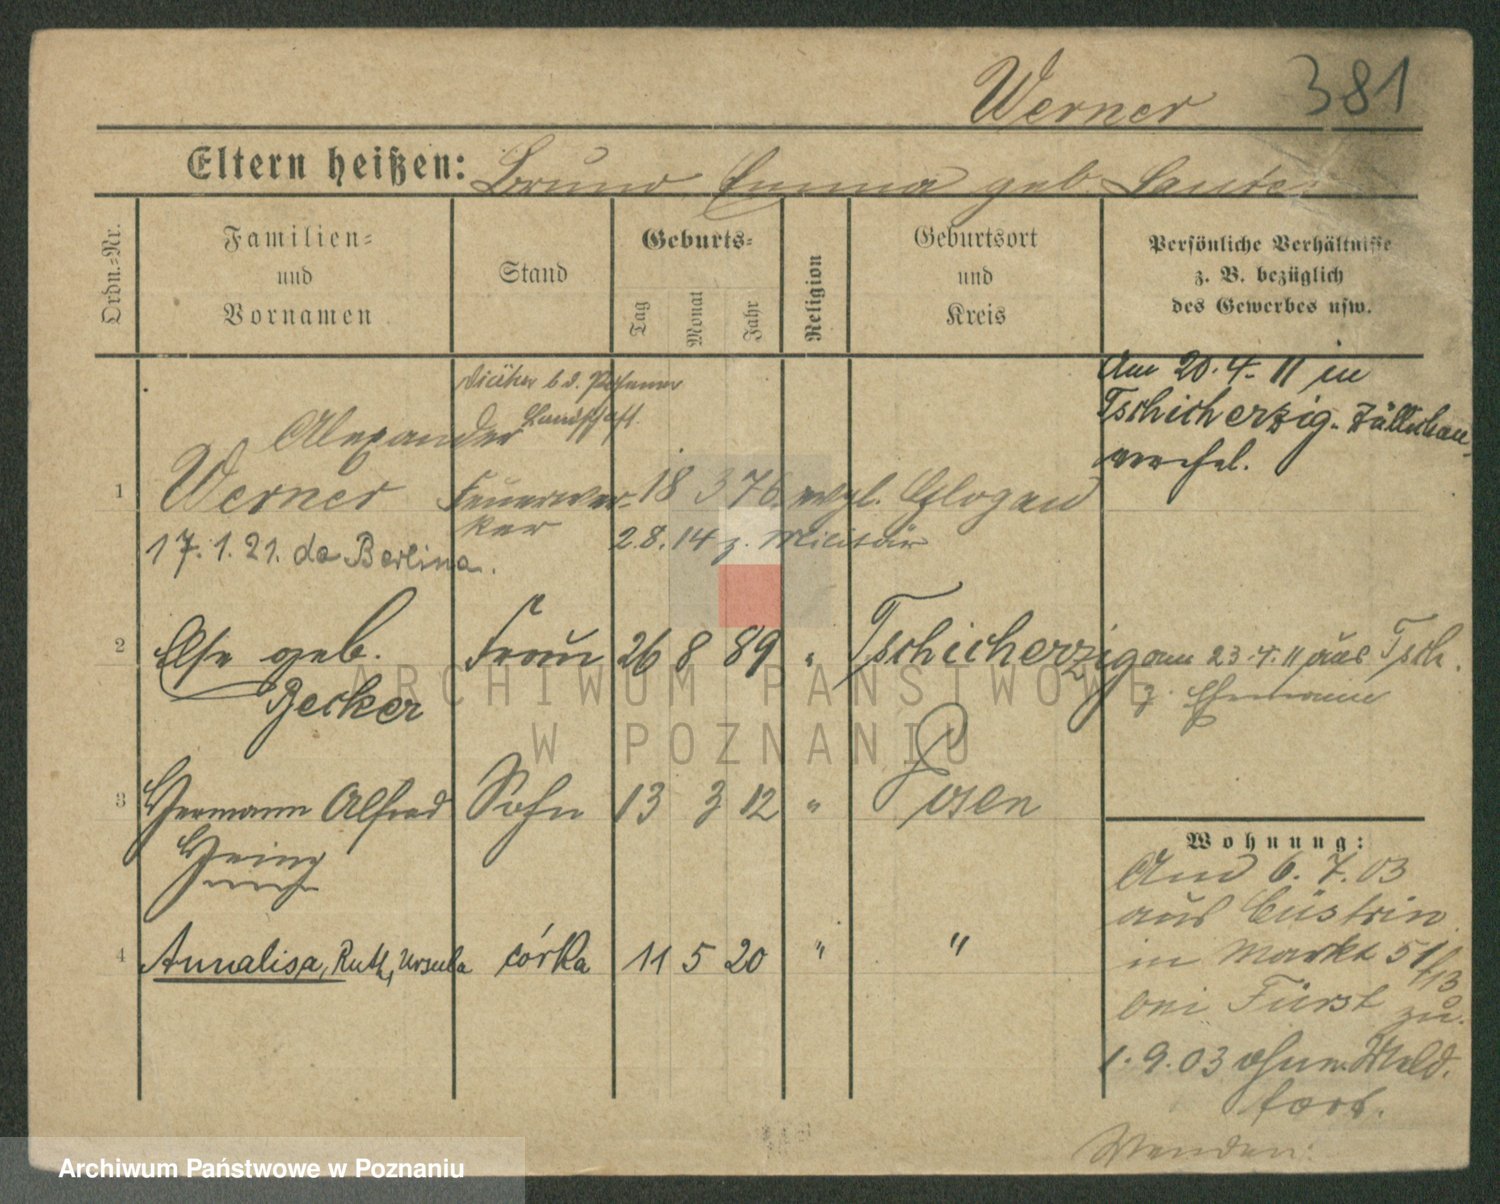 Werner 381
Eltern heißen: Bruno Emma geb.
Ordn.=Nr.
Familien=
und
Vornamen
Stand
Geburts=
Tag
Monat
Jahr
Religion
Geburtsort
und
Kreis
Persönliche Verhältnisse
z. B. bezüglich
des Gewerbes usw.
b. d. Posener
Landschaft.
Am 20.4.11 in
Tschicherzig-Züllichau
verehel.
Alexander
1 Werner Feuerwer- 18 3 76. evgl. Glogau
ker
17.1.21. do Berlina. 2.8.14 z. Militär
2 Else geb. Frau 26 8 89 " Tschicherzig am 23.4.11 aus Tsch.
Becker z. Ehemann
3 Hermann Alfred Sohn 13 3 12 " Posen
Heinz
Wohnung:
Am 6.7.03
aus Cüstrin
in Markt 51/
bei Fürst zu.
1.9.03 ohne Meld.
fort.
Wenden.
4 Annalisa, Ruth, Ursula córka 11 5 20 " "
ARCHIWUM PAŃSTWOWE
W POZNANIU
Archiwum Państwowe w Poznaniu